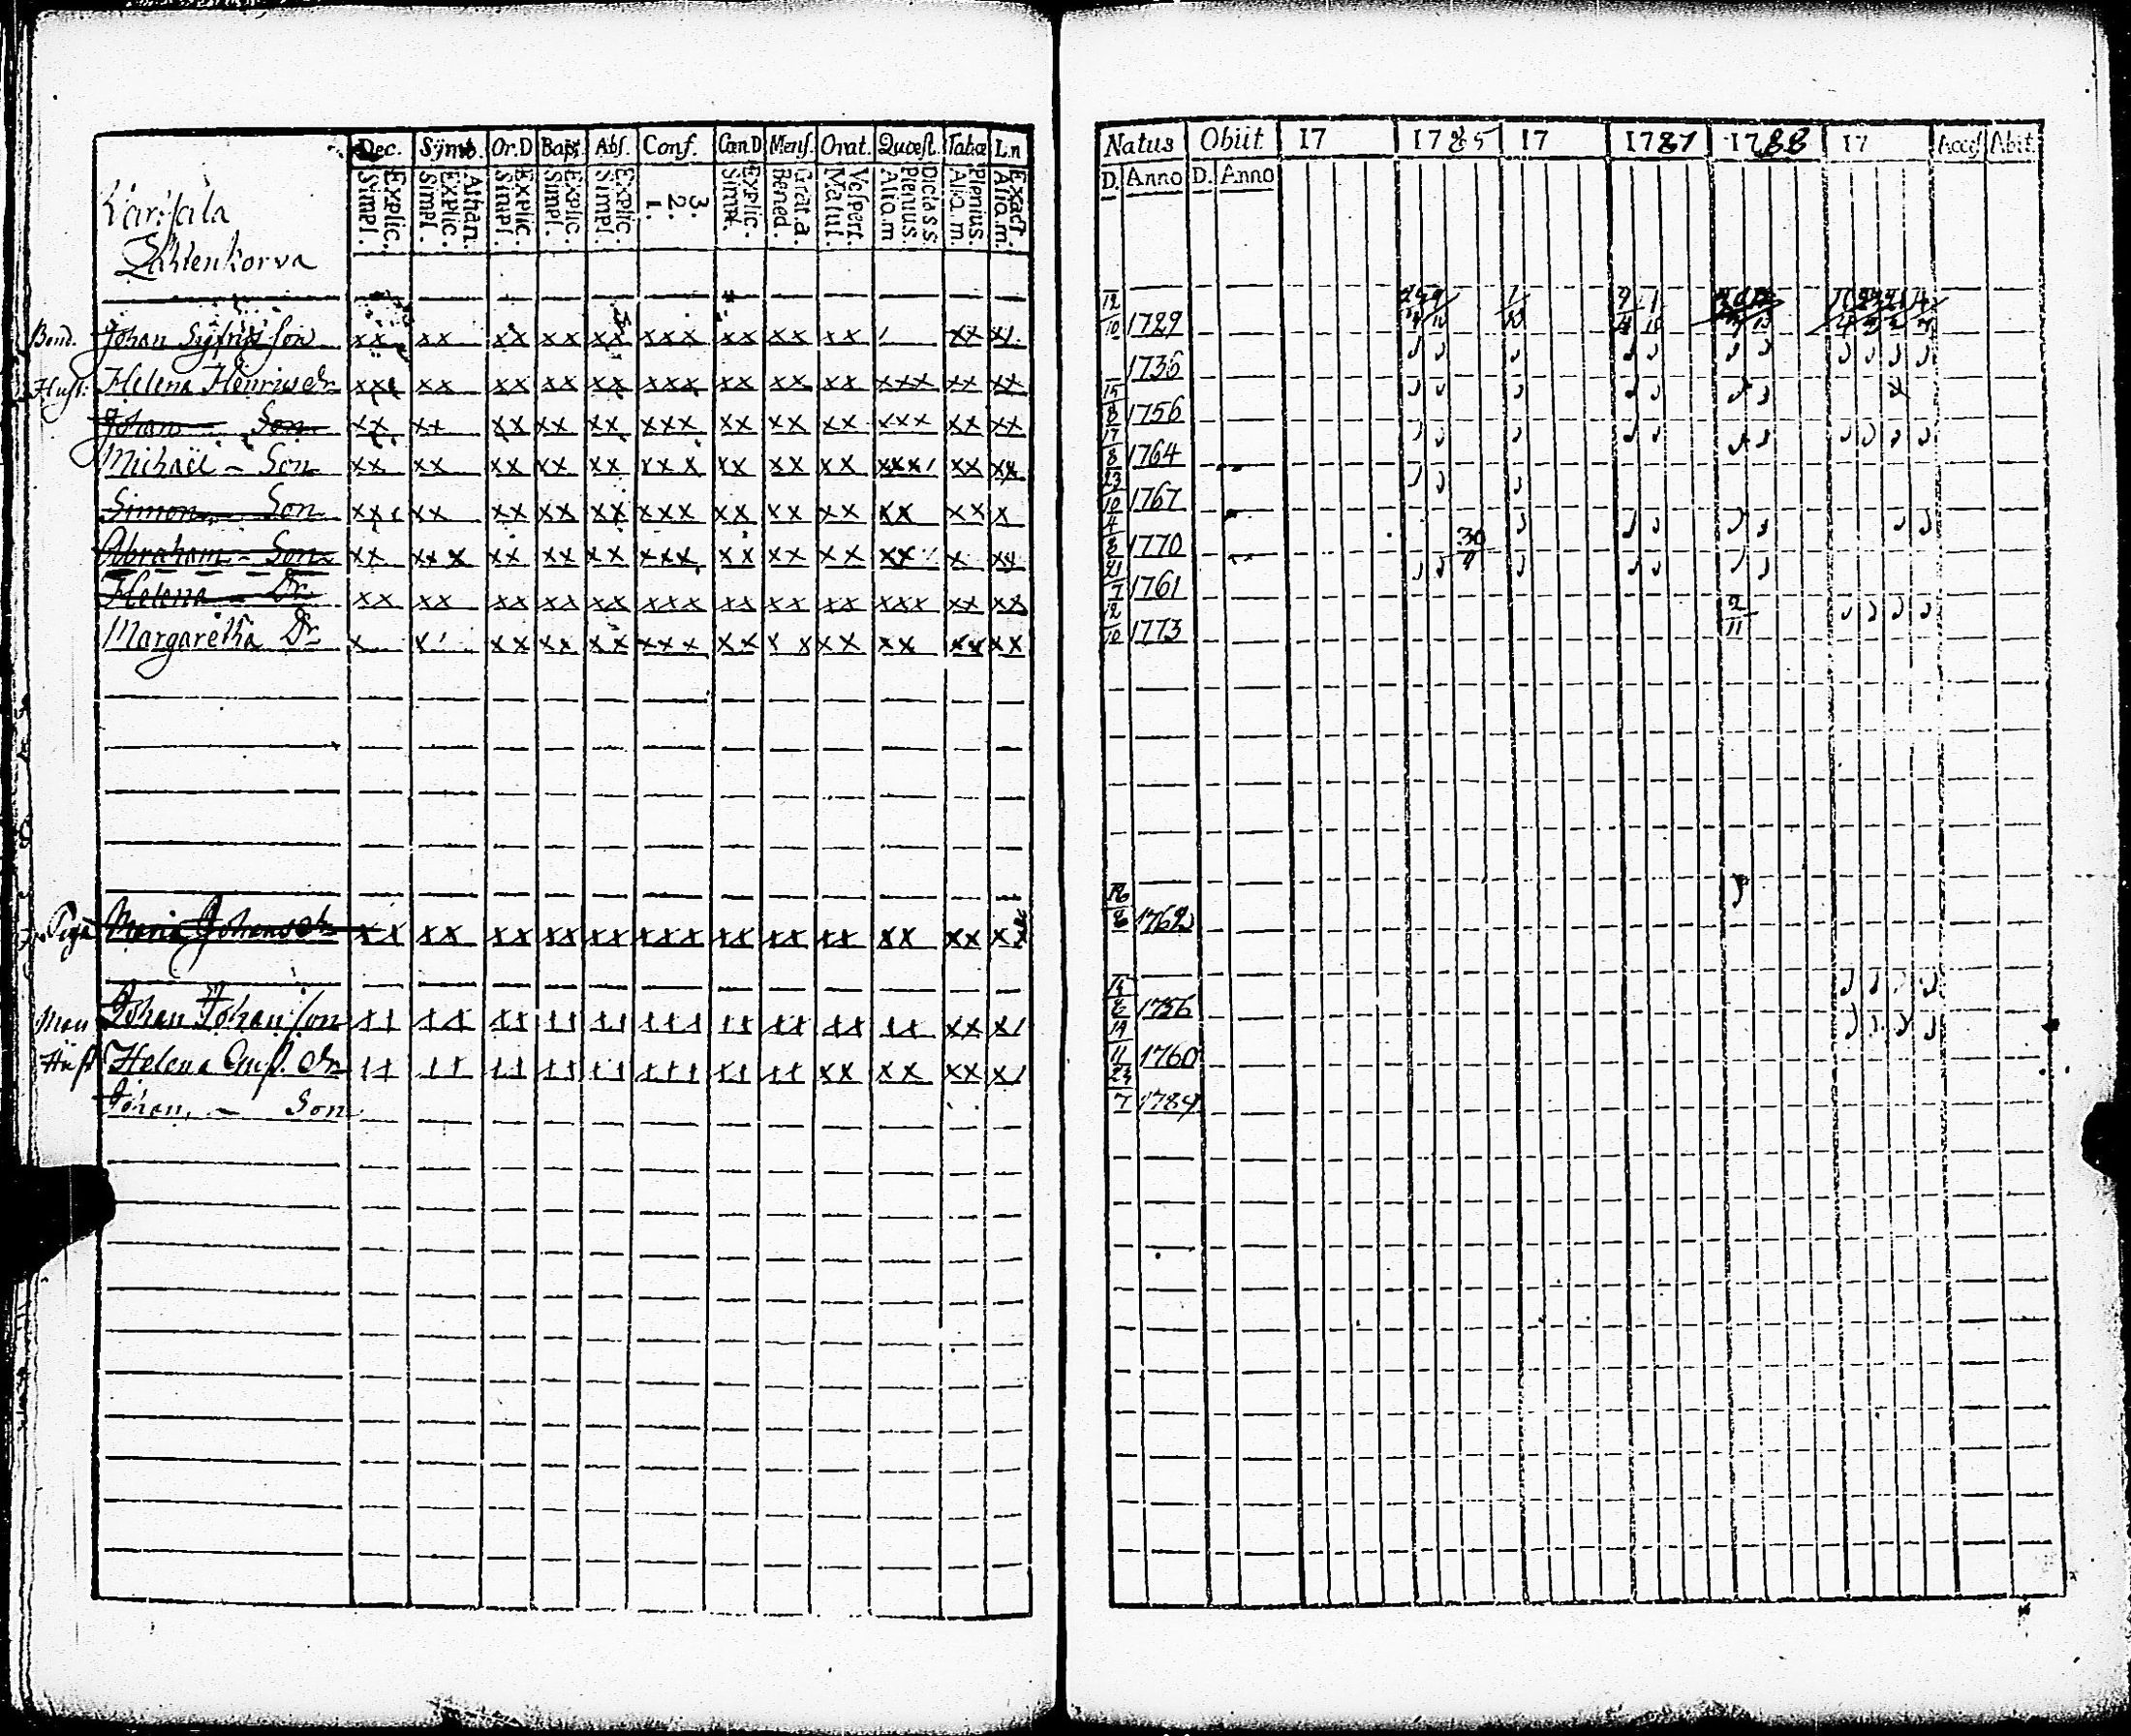 Dec. Symb. Or.D Bapt. Abs. Conf. Cœn.D Mens. Orat. Quæst. Tabæ L.n
Explic. Simpl. Athan. Explic. Simpl. Explic. Simpl. Explic. Simpl. Explic. Simpl. 3. 2. 1. Explic. Simpl. Grat.a. Bened. Vespert. Matut. Dicta s.s. Plenius. Alio.m Plenius. Alio.m. Exact. Alia.m.
Karsala
Lahtenkorva
Bond. Johan Sigfrids son xx xx xx xx xx xxx xx xx xx / xx x/
Hust: Helena Henricsdr xxx xx xx xx xx xxx xx xx xx xxx xx xx
Johan — Son xx xx xx xx xx xxx xx xx xx xxx xx xx
Michaël — Son xx xx xx xx xx xxx xx xx xx xxx/ xx xx
Simon — Son xxx xx xx xx xx xxx xx xx xx xx xx x
Abraham — Son xx xxx xx xx xx xxx xx xx xx xx x xx
Helena — Dr xx xx xx xx xx xxx xx xx xx xxx xx xx
Margaretha Dr x x/ xx xx xx xxx xx xx xx xx xx xx
Piga Maria Johansdr xx xx xx xx xx xxx xx xx xx xx xx xx
Man Johan Johansson xx xx xx xx xx xxx xx xx xx xx xx x/
Hust Helena dr xx xx xx xx xx xxx xx xx xx xx xx x/
Johan — Son
Natus Obiit 17 1785 17 1787 1788 17 Acces Abit
D. Anno D. Anno
12/10 1729
1736
15/8 1756
17/8 1764
23/10 1767
4/8 1770 30/9
21/7 1761
12/10 1773 2/11
1762
1756
19/11 1760
24/7 1789